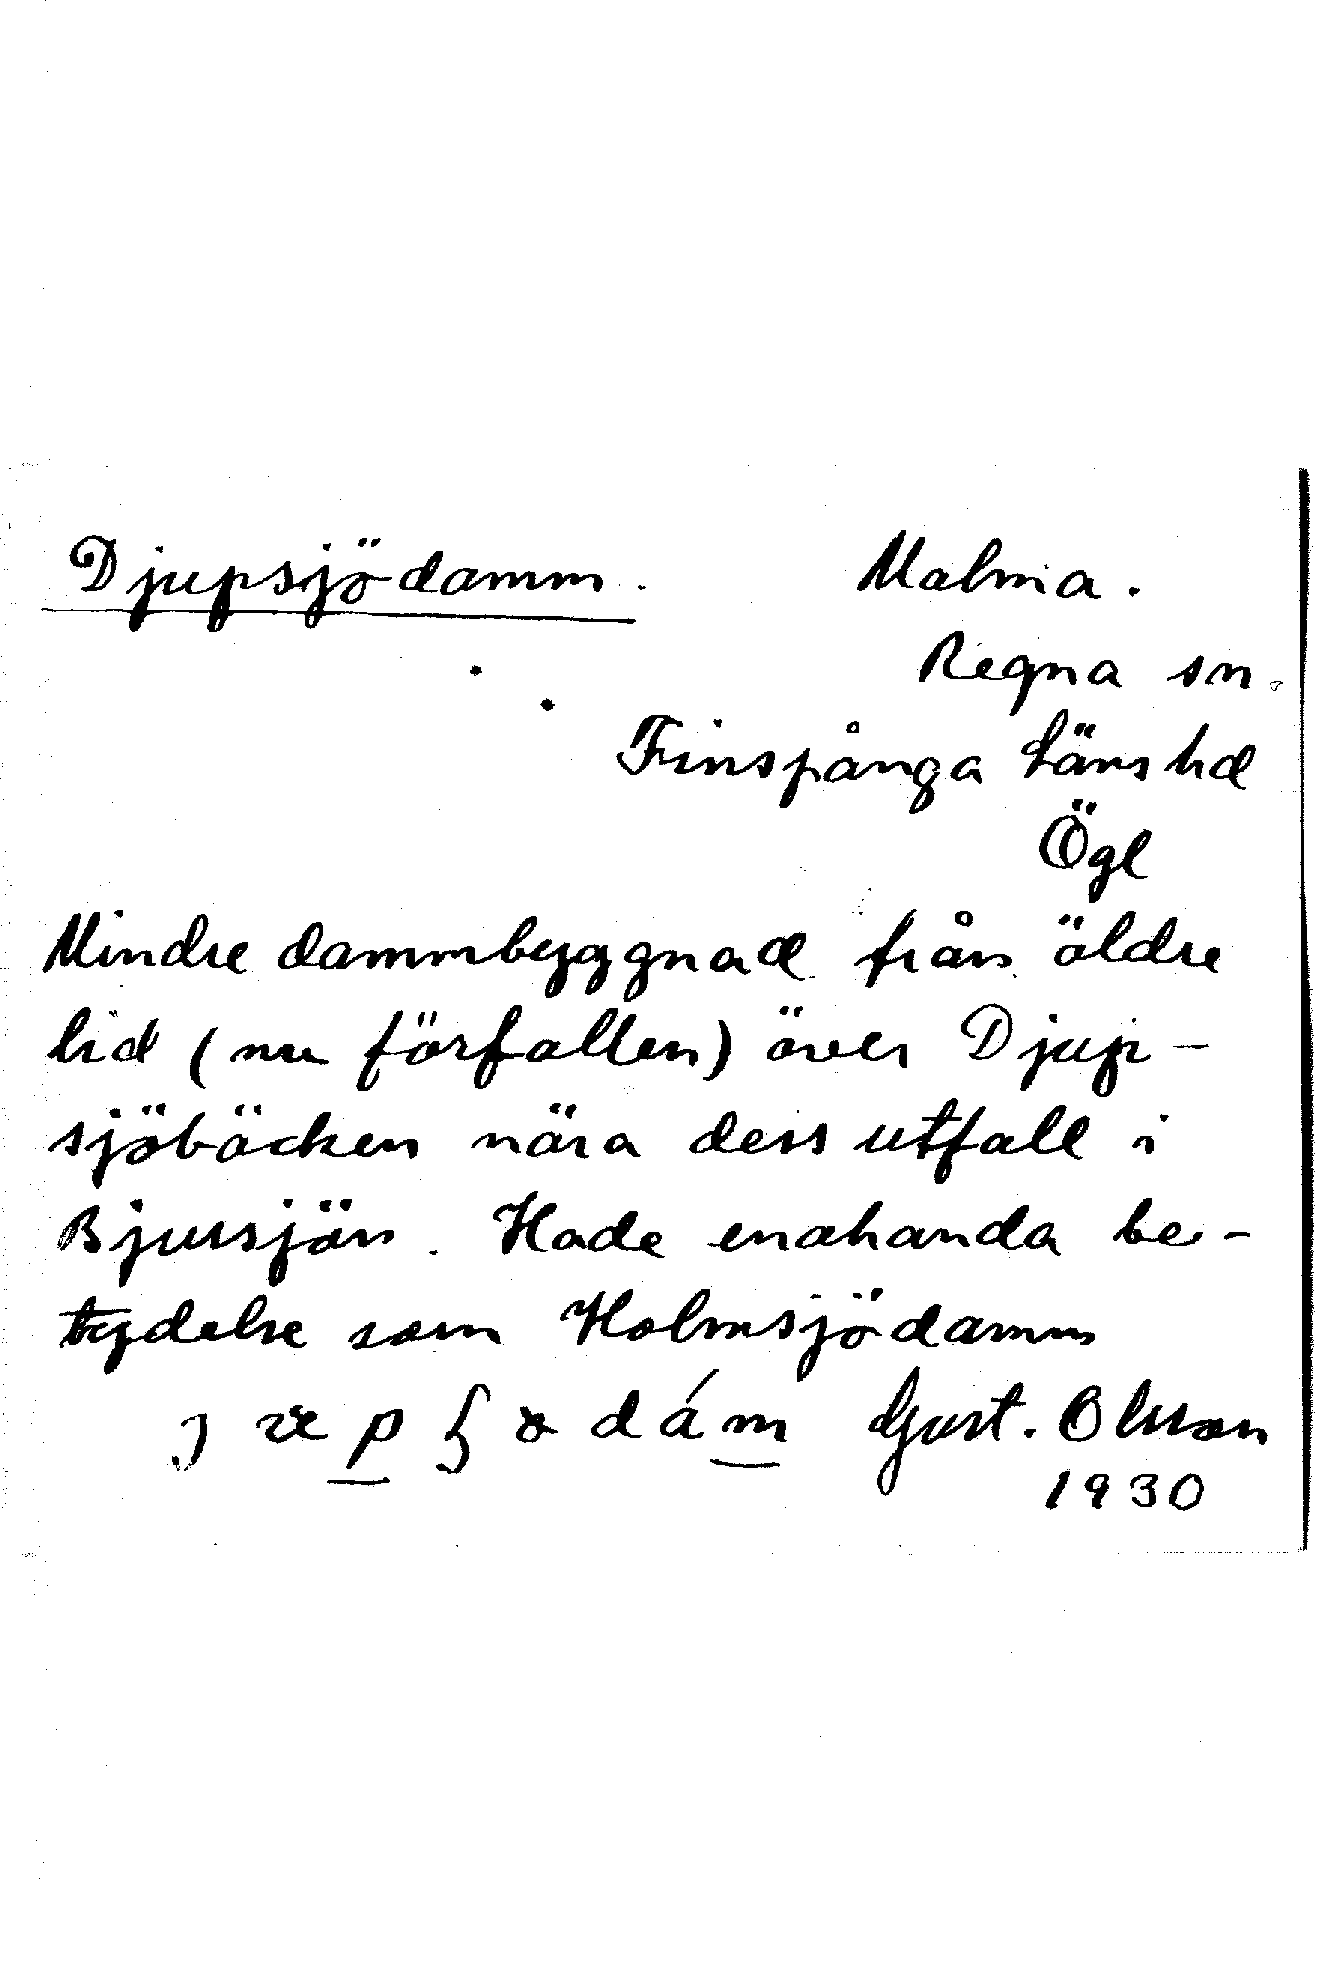 Djupsjödamm. Malma.
Regna sn.
Finspånga läns hd
Ögl
Mindre dammbyggnad från äldre
tid (nu förfallen) över Djup-
sjöbäcken nära dess utfall i
Bjursjön. Hade enahanda be-
tydelse som Holmsjödamm
Gust. Olsson
1930